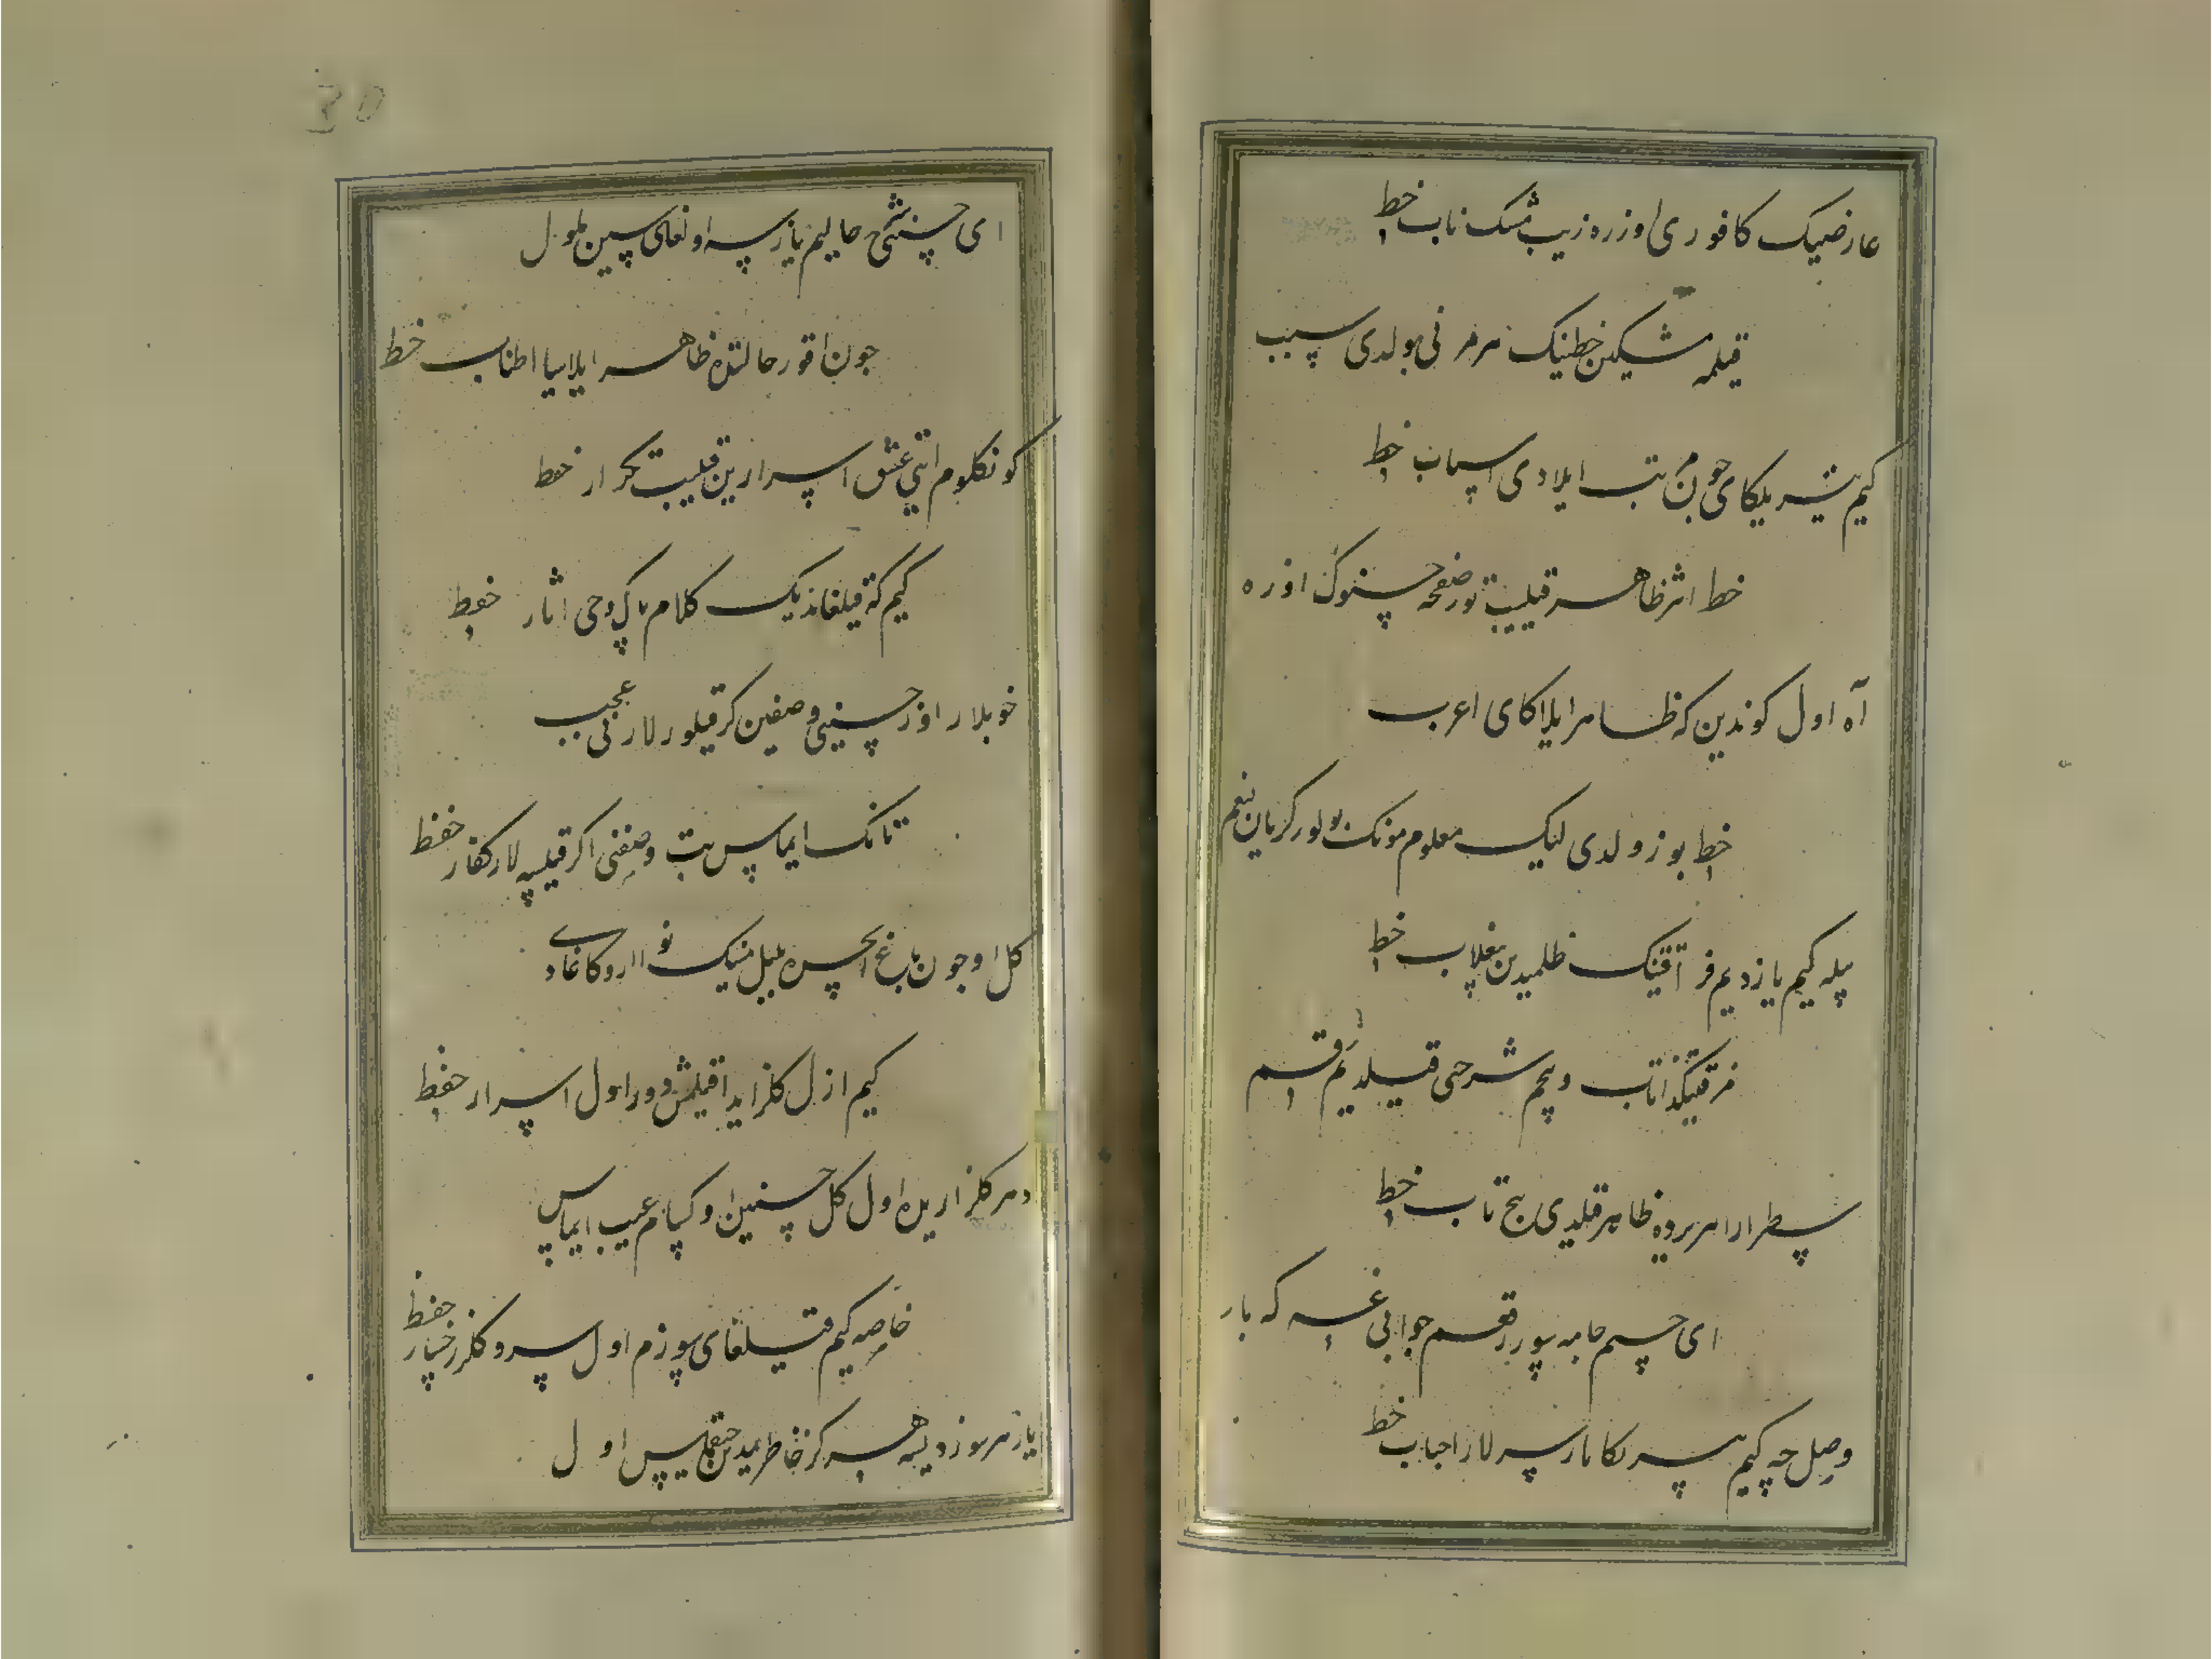 عارضینک کافوری اوزره زیب مشک ناب خط
قیلمه مشکین خطینک هر مر نی بولدی سبب
کیم بشر یلکای جون ثبت ایلادی اسباب خط
خط اثر ظاهر قیلیب تور صفحه حسنونک اوزره
آه اول کوندین که ظاهر ایلاکای اعرب
خط بوزولدی لیک معلوم مونک بولور کریان
یله کیم یازدیم فراقینک ظلمیدین یغلاب خط
فرقتینکدا تاب وپچم شرحی قیلدیم رقم
سطر ارا هر یرده ظاهر قلدی پیچ تاب خط
ای حسم خامه سورر رقعم جوابی غه که بار
وصل جه کیم سر نکا یارسه لار احباب خط
ای حسن شرح حالیم یازسه اولغای سین ملول
جون اقور حالتده ظاهر ایلاسا اطناب خط
کونکلوم ایتی عشق اسرارین قیلیب تکرار حفظ
کیم که قیلغاندیک کلام پاک وحی اثار حفظ
خوبلار اوز حسنینی وصفین کر قیلورلار نی عجب
تانک ایماس بت وصفنی اکر قیلسه لار کفار حفظ
کل اوجون باغ ایچره بلبل نینک نوا اروکاغادی
کیم ازل کلزاریدا قیلمش دور اول اسرار حفظ
دهر کلزاریده اول کل حسنین اوکسام عیب ایماس
خاصه کیم قیلغای سوزم اول سرو کلرخسار حفظ
یازهر سوز دیسه هرکز خاطریمدین حقلیس اول